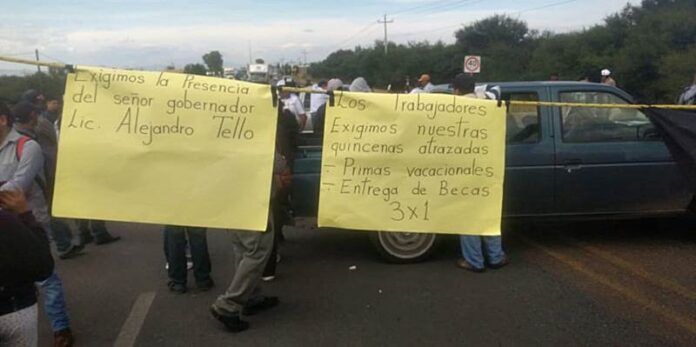 Exigimos la Presencia
del señor gobernador
Lic. Alejandro Tello
Los Trabajadores
Exigimos nuestras
quincenas atrazadas
- Primas vacacionales
- Entrega de Becas
3x1
40